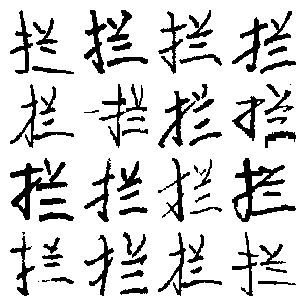 拦拦拦拦
拦拦拦拦
拦拦拦拦
拦拦拦拦